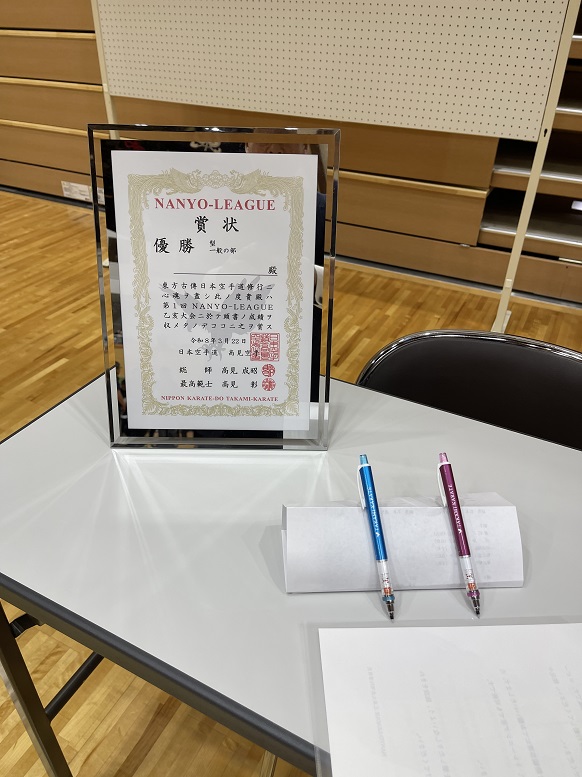 NANYO-LEAGUE
賞状
優勝 型 一般の部
殿
東方古傳日本空手道修行ニ
心魂ヲ盡シ此ノ度貴殿ハ
第1回 NANYO-LEAGUE
乙亥大会ニ於テ頭書ノ成績ヲ
収メタノデココニ之ヲ賞ス
令和8年3月22日
日本空手道 高見空手
総師 高見 成昭
最高範士 高見 彰
NIPPON KARATE-DO TAKAMI-KARATE